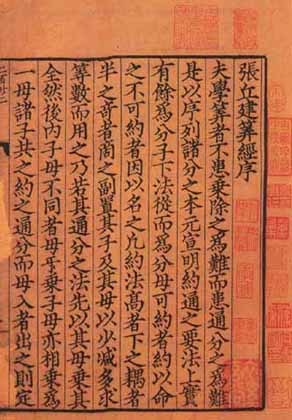 張丘建筭經序
夫學筭者不患乗除之為難而患通分之為難
是以序列諸分之本元宣明約通之要法上實
有餘為分子下法從而為分母可約者約以命
之不可約者因以名之凡約法髙者下之耦者
半之竒者商之副置其子及其母以少減多求
等數而用之乃若其通分之法先以其母乗其
全然後内子母不同者母乎乗子母亦相乗為
一母諸子共之約之通分而母入者出之則定